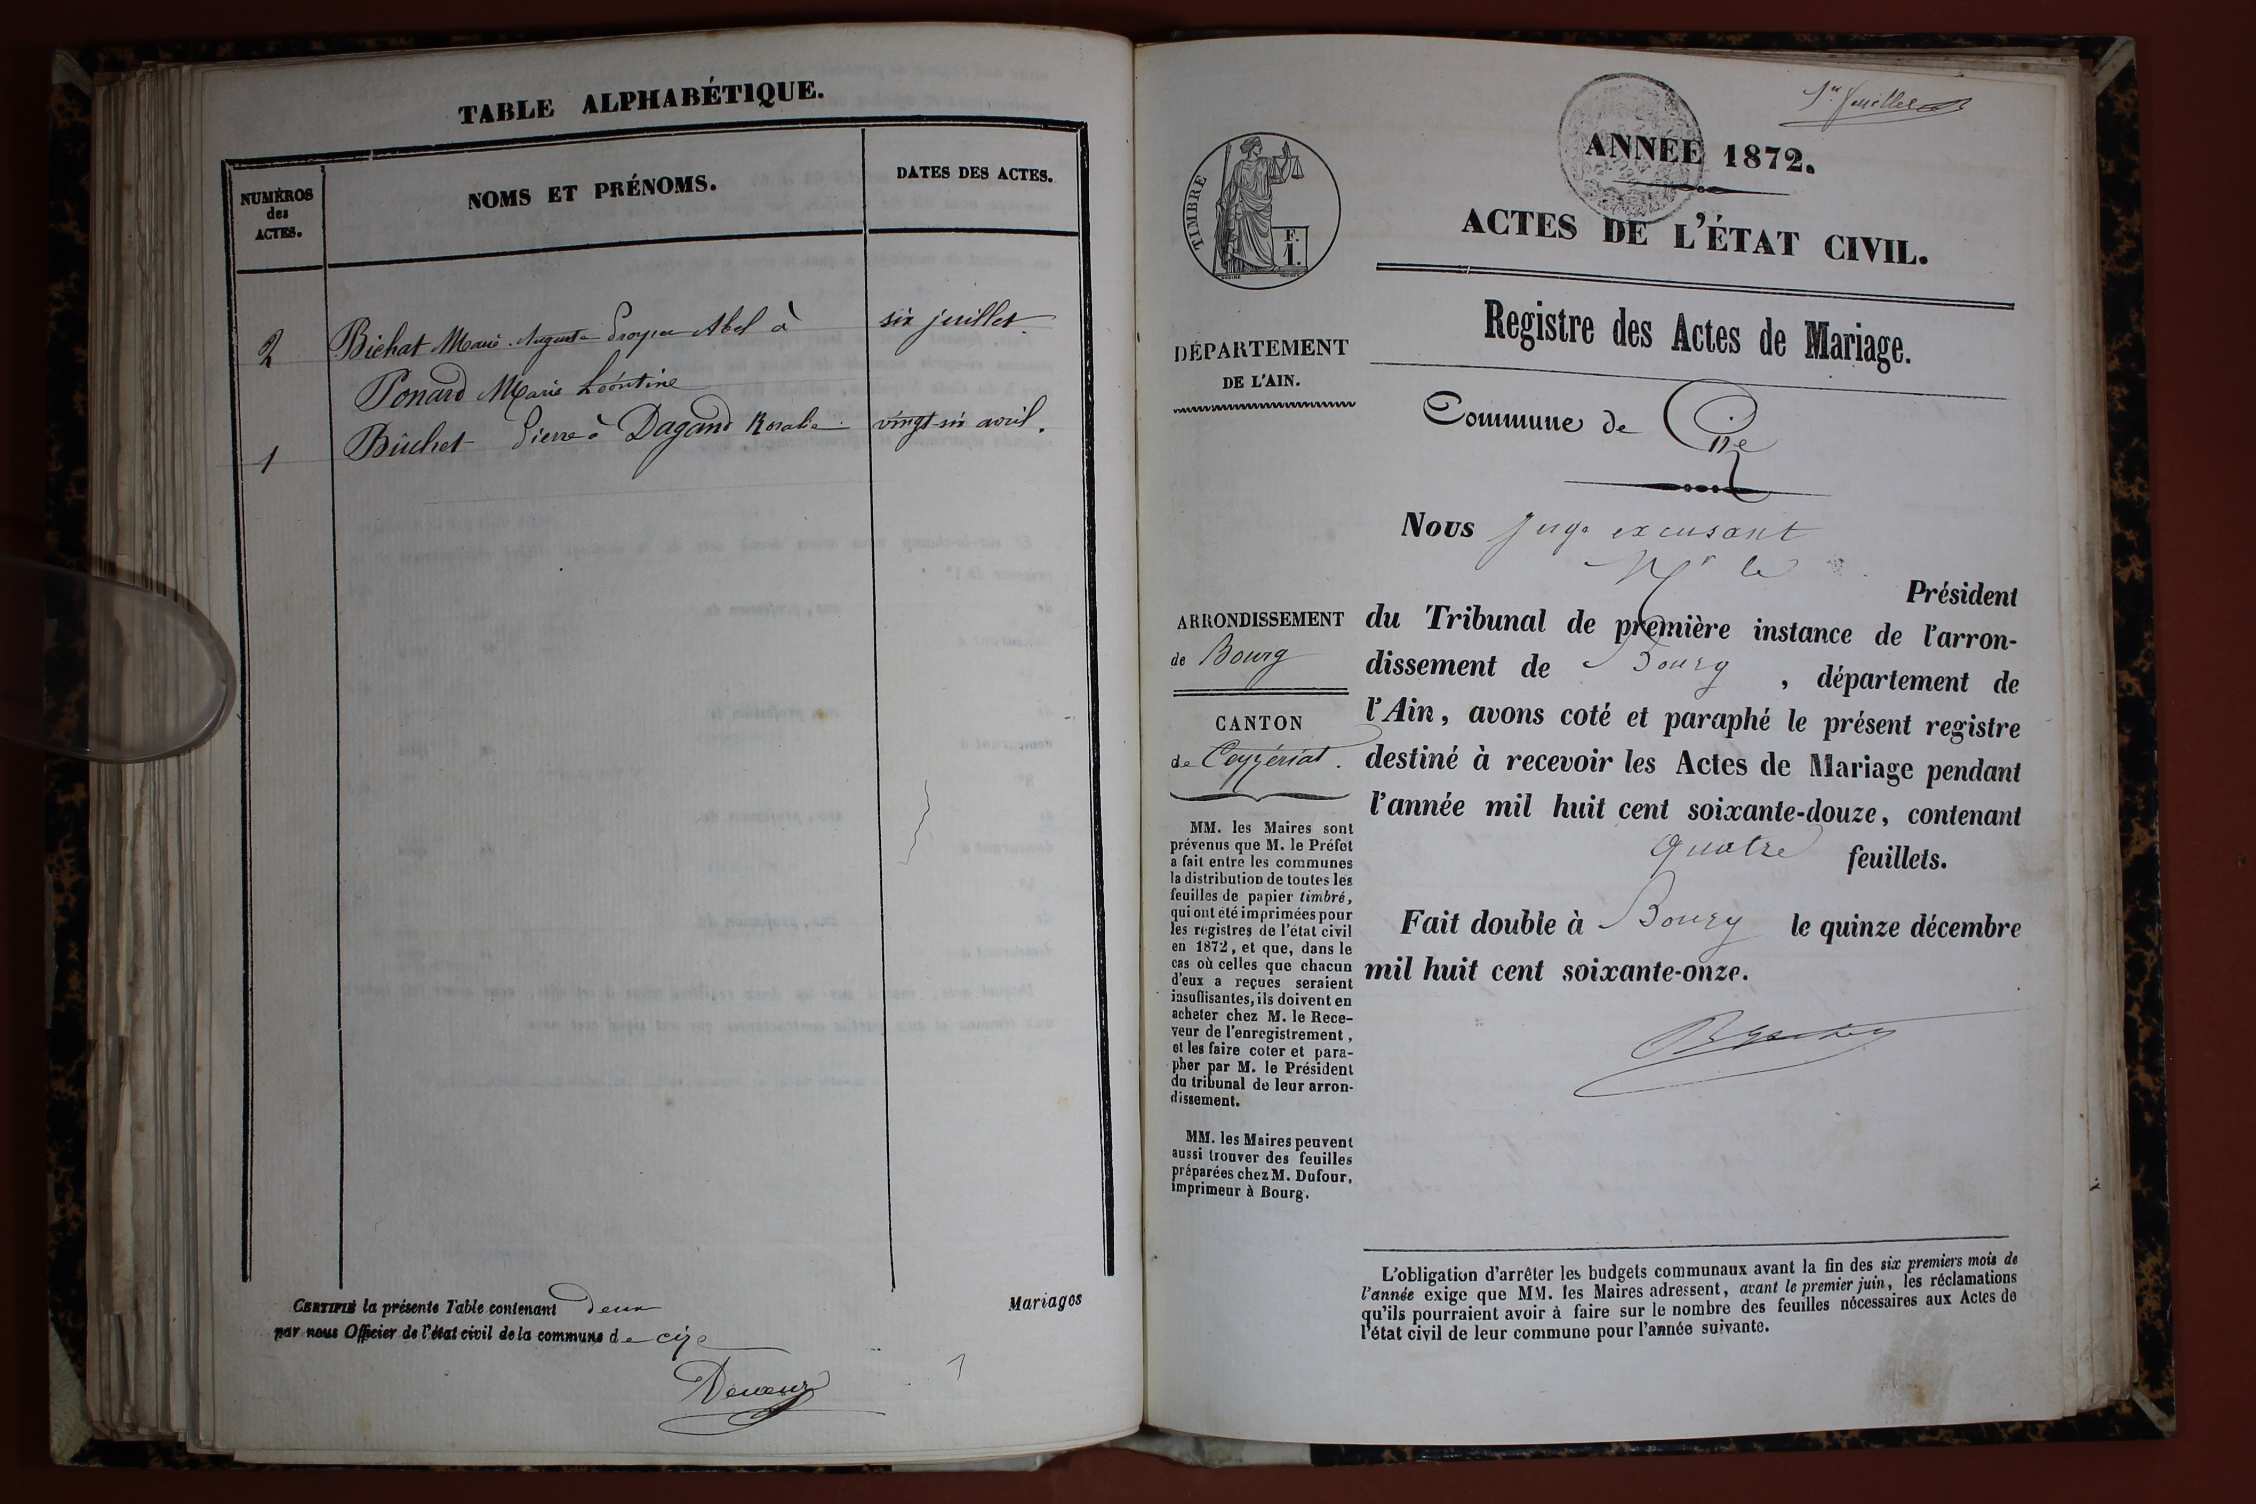 TABLE ALPHABÉTIQUE.
NUMÉROS
des
ACTES.
NOMS ET PRÉNOMS.
DATES DES ACTES.
2 Bichat Marie Auguste Abel à six juillet.
Ponard Marie Léontine
1 Buchet Pierre à Dagand Rosalie vingt-six avril.
CERTIFIÉ la présente Table contenant deux
Mariages
par nous Officier de l'état civil de la commune de cize
1er feuillet
ANNÉE 1872.
ACTES DE L'ÉTAT CIVIL.
TIMBRE
F.
1.
Registre des Actes de Mariage.
DÉPARTEMENT
DE L'AIN.
Commune de Cize
Nous Juge excusant
Mr le
Président
ARRONDISSEMENT
de Bourg
du Tribunal de première instance de l'arron-
dissement de Bourg, département de
l'Ain, avons coté et paraphé le présent registre
destiné à recevoir les Actes de Mariage pendant
l'année mil huit cent soixante-douze, contenant
quatre feuillets.
Fait double à Bourg le quinze décembre
mil huit cent soixante-onze.
CANTON
de Ceyzériat.
MM. les Maires sont
prévenus que M. le Préfet
a fait entre les communes
la distribution de toutes les
feuilles de papier timbré,
qui ont été imprimées pour
les registres de l'état civil
en 1872, et que, dans le
cas où celles que chacun
d'eux a reçues seraient
insuffisantes, ils doivent en
acheter chez M. le Rece-
veur de l'enregistrement,
et les faire coter et para-
pher par M. le Président
du tribunal de leur arron-
dissement.
MM. les Maires peuvent
aussi trouver des feuilles
préparées chez M. Dufour,
imprimeur à Bourg.
L'obligation d'arrêter les budgets communaux avant la fin des six premiers mois de
l'année exige que MM. les Maires adressent, avant le premier juin, les réclamations
qu'ils pourraient avoir à faire sur le nombre des feuilles nécessaires aux Actes de
l'état civil de leur commune pour l'année suivante.